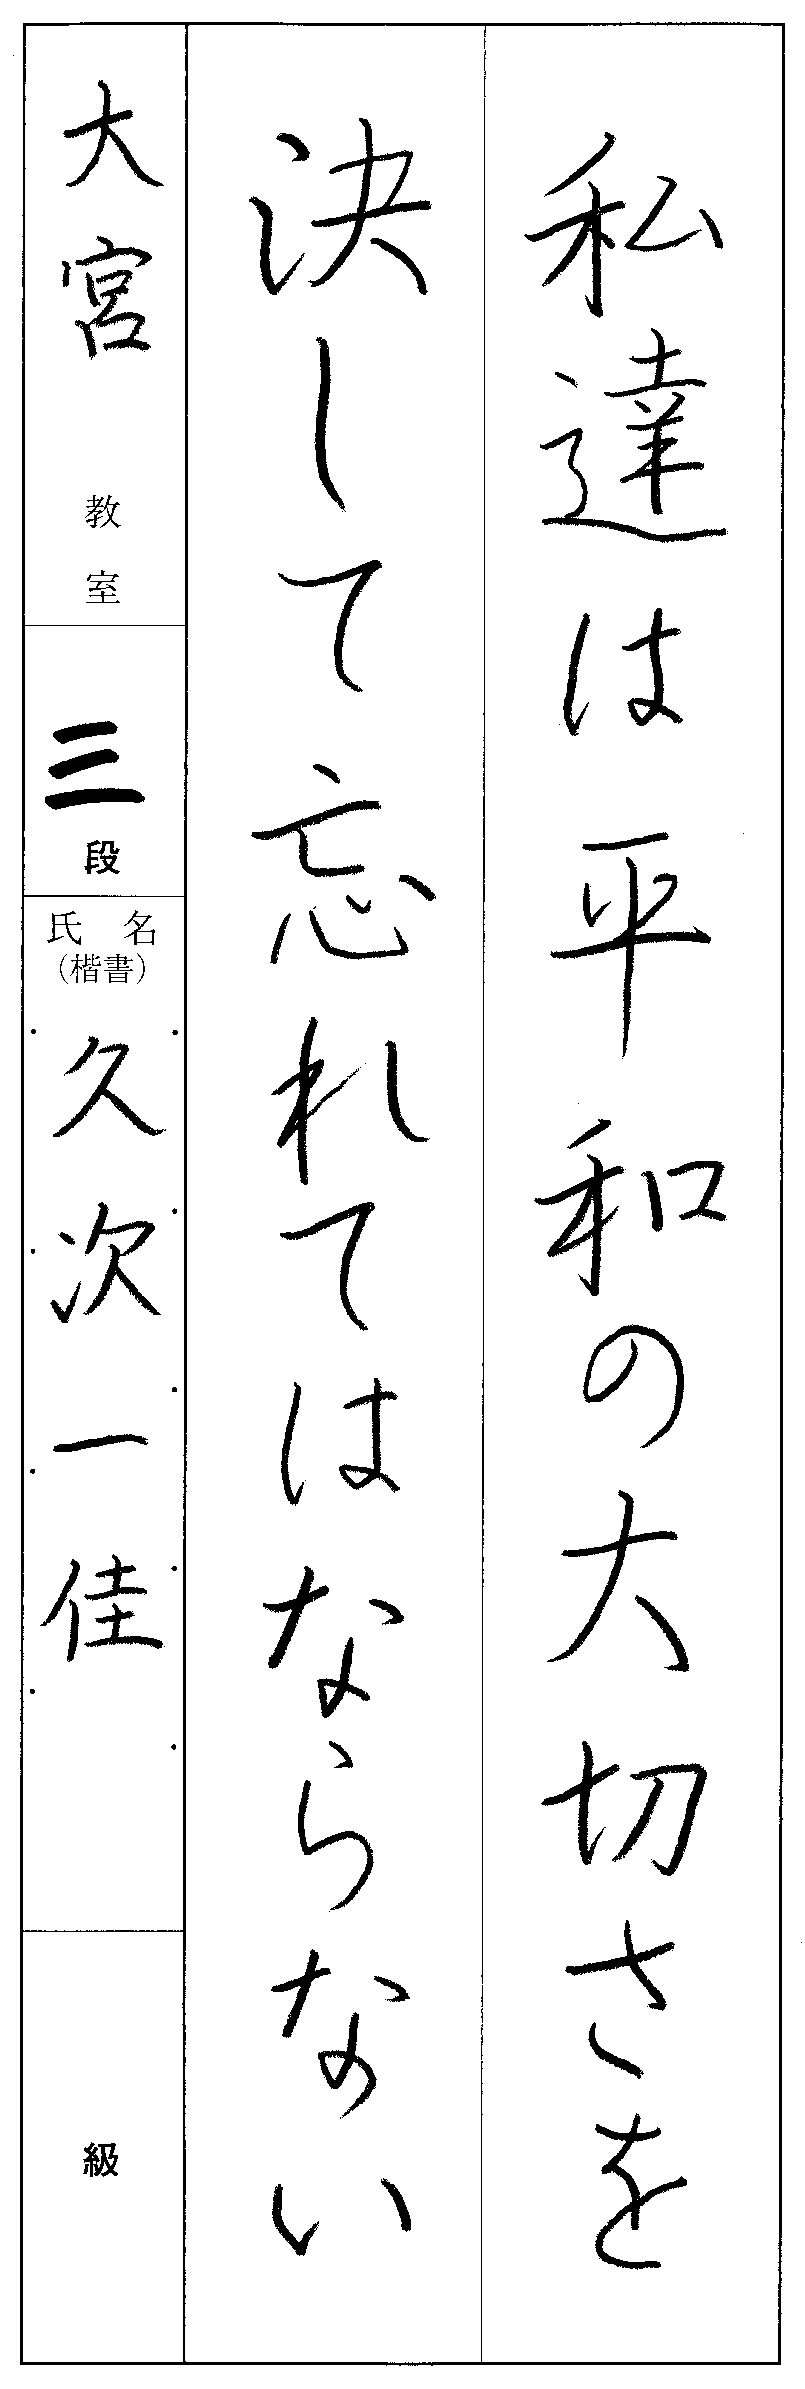 私達は平和の大切さを
決して忘れてはならない
大宮教室
三段
氏名
(楷書)
久次一佳
級